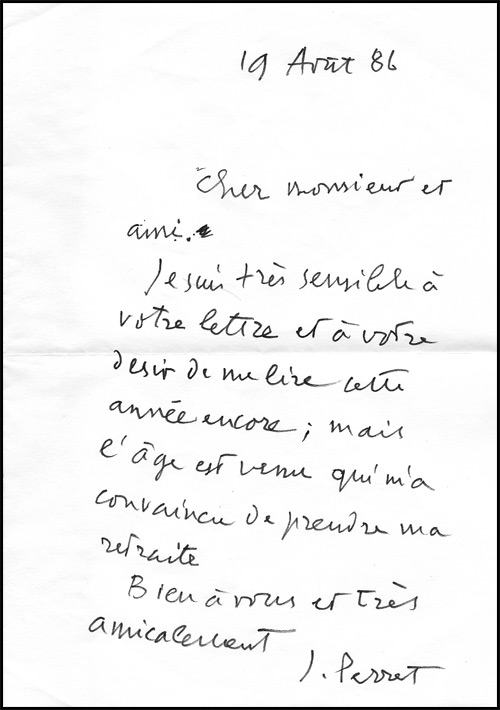 19 Août 86
Cher monsieur et
ami.
Je suis très sensible à
votre lettre et à votre
desir de me lire cette
année encore ; mais
l'âge est venu qui m'a
convaincu de prendre ma
retraite
Bien à vous et très
amicalement
J. Perret